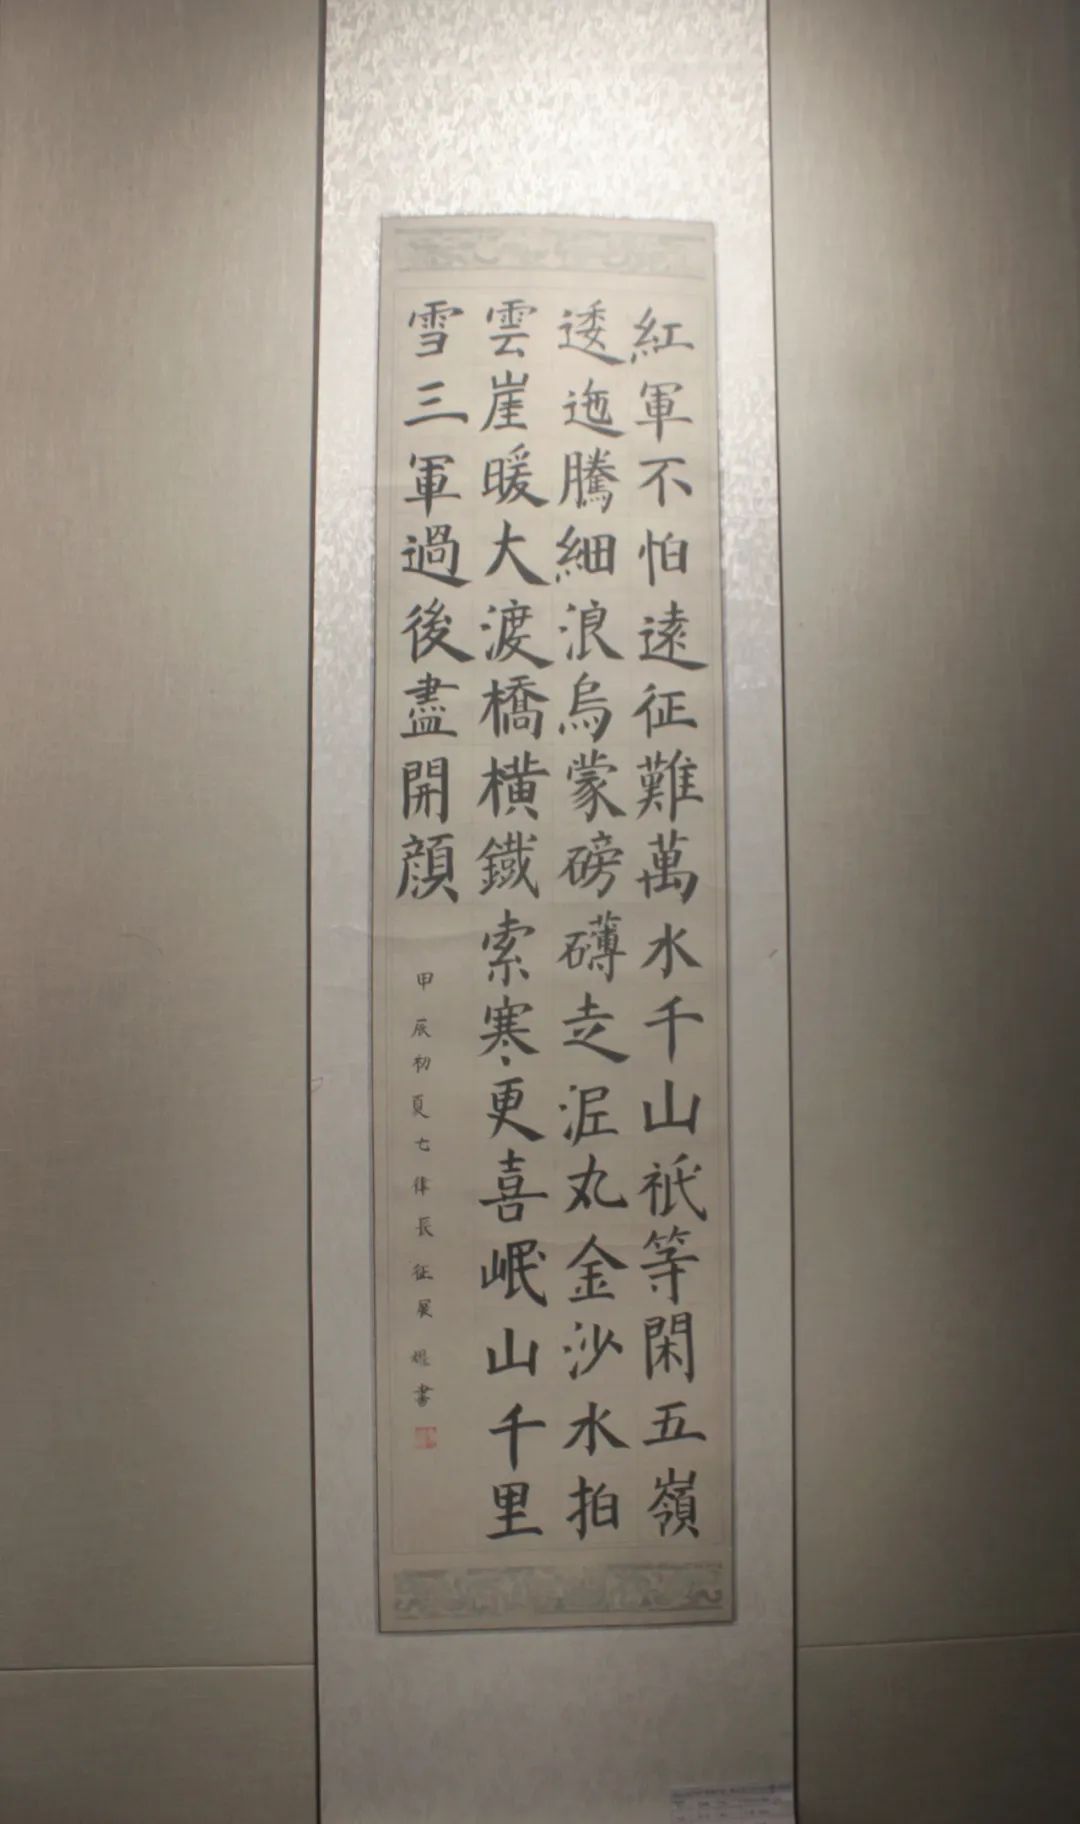 紅軍不怕遠征難萬水千山祇等閑五嶺
逶迤騰細浪烏蒙磅礴走泥丸金沙水拍
雲崖暖大渡橋橫鐵索寒更喜岷山千里
雪三軍過後盡開顔
甲辰初夏七律長征展書